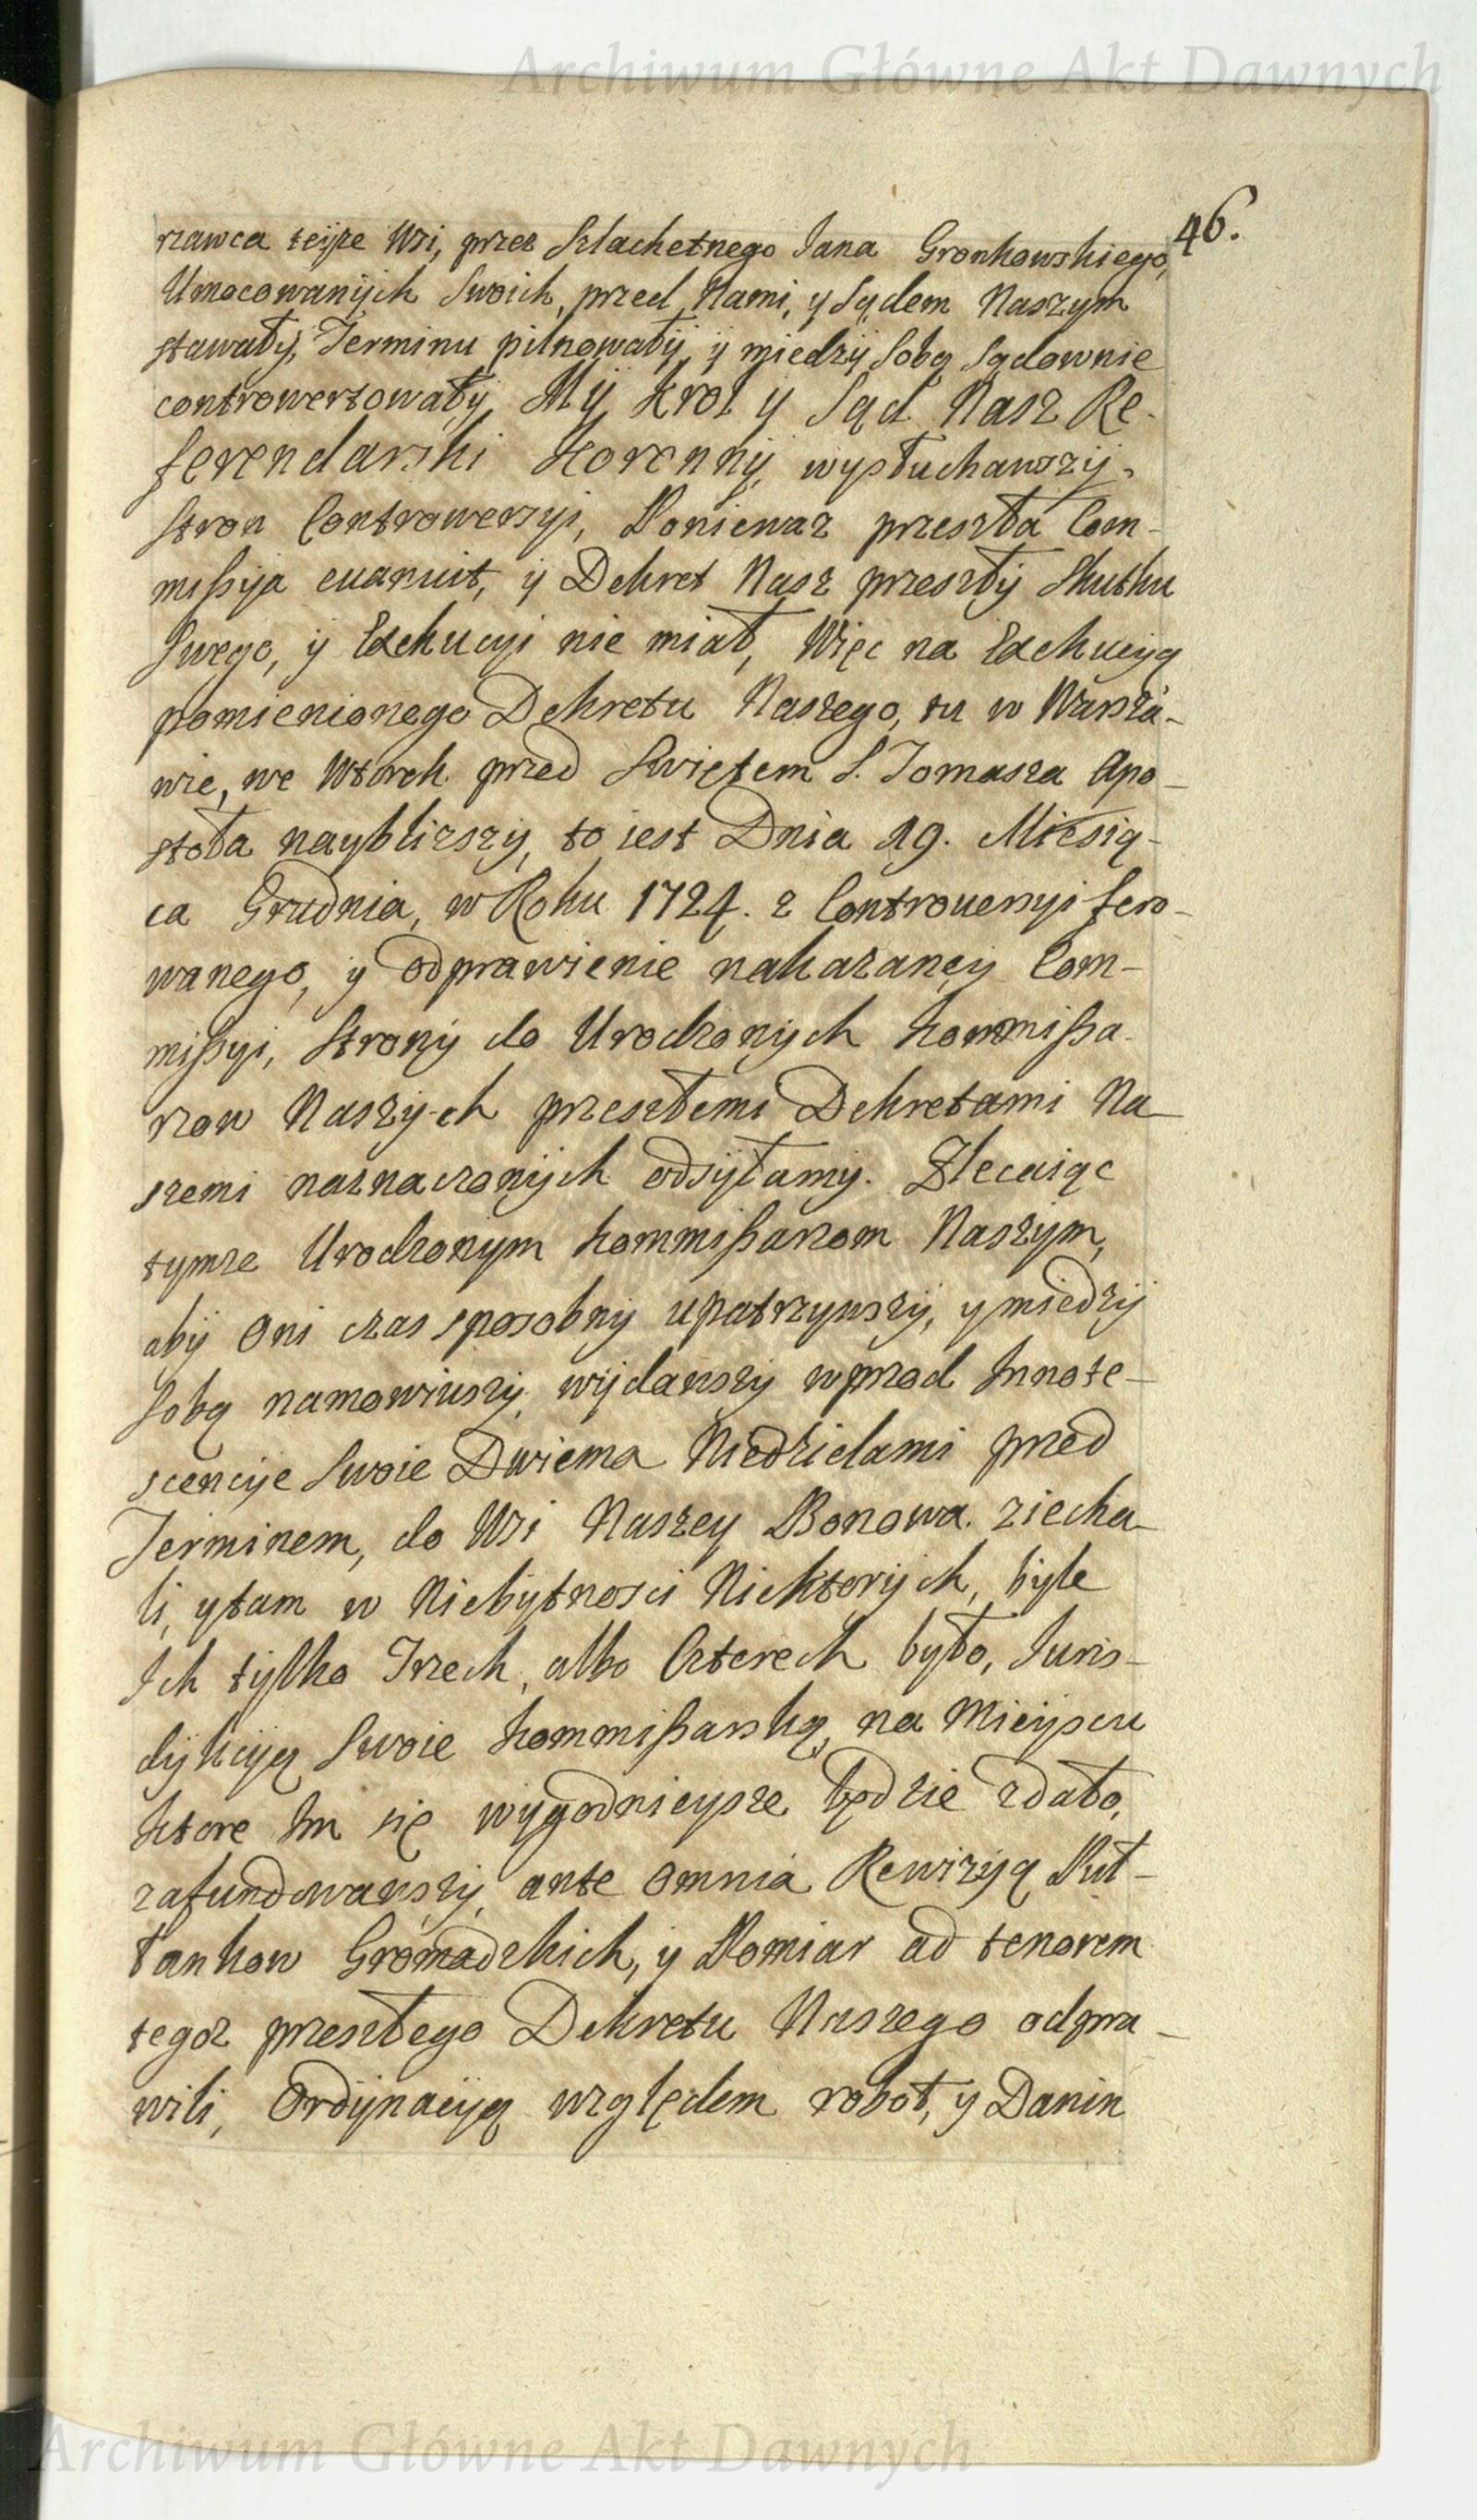 Archiwum Główne Akt Dawnych
46.
rzawca teyże Wsi, przez Szlachetnego Jana Gronkowskiego,
Umocowanÿch Swoich, przed Nami, y Sądem Naszym
stawałÿ, Terminu pilnowałÿ, ÿ międzÿ Sobą Sądownie
controwertowałÿ, Mÿ Krol y Sąd Nasz Re-
ferendarski Koronnÿ, wysłuchawszÿ,
Stron Controwersyi, Ponieważ przeszła Com-
mißyja evanuit, ÿ Dekret Nasz przeszłÿ Skutku
Swego, ÿ Exekucyi nie miał, Więc na Exekucyą
pomienionego Dekretu Naszego, tu w Warsza-
wie, we Wtorek przed Swiętem S. Tomasza Apo-
stoła nayblizszÿ, to iest Dnia 19. Miesią-
ca Grudnia, w Roku 1724. z Controuersyi fero-
wanego, y odprawienie nakazaneÿ Com-
mißyi, Stronÿ do Urodzonÿch Kommißa-
rzow Naszych przeszłemi Dekretami Na-
szemi naznaczonÿch odsÿłamÿ. Zlecaiąc
tymze Urodzonym Kommißarzom Naszÿm,
abÿ Oni czas sposobnÿ upatrzywszÿ, y międzÿ
Sobą namowiwszÿ, wÿdawszÿ wprzod Innote-
scencÿe Swoie Dwiema Niedzielami przed
Terminem, do Wsi Naszey Bonowa ziecha-
li, y tam w Niebÿtnosci Niektorÿch, bÿle
Ich tÿlko Trzech, albo Czterech bÿło, Juris-
dÿkcÿą Swoie Kommißarską, na Mieÿscu
ktore Im się wÿgodnieysze będzie zdało,
zafundowawszÿ, ante Omnia Rewizÿą Puł-
łankow Gromadzkich, y Pomiar ad tenorem
tegoż przeszłego Dekretu Naszego odpra-
wili, Ordÿnacÿą względem robot, y Danin
Archiwum Główne Akt Dawnych